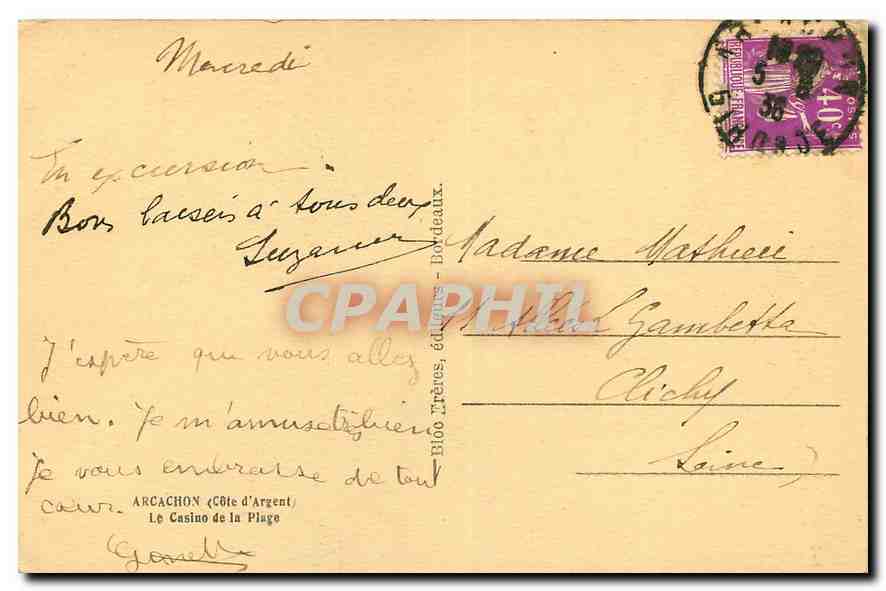 Mercredi
En excursion.
Bons baisers à tous deux
Suzanne
J'espère que vous allez
bien. Je m'amuse très bien
je vous embrasse de tout
cœur.
ARCACHON (Côte d'Argent)
Le Casino de la Plage
Bloc Frères, éditeurs - Bordeaux.
CPAPHIL
Madame Mathieu
Gambetta
Clichy
Seine)
REPUBLIQUE FRANÇAISE
POSTES
40c
5
36
GIRONDE